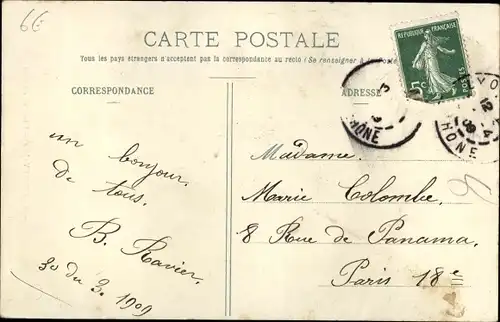 66
CARTE POSTALE
Tous les pays étrangers n'acceptent pas la correspondance au recto (Se renseigner à la Poste)
CORRESPONDANCE
ADRESSE
REPUBLIQUE FRANÇAISE
5c
POSTES
RHÔNE
RHONE
un bonjour
de tous.
B. Ravier
30 du 3. 1909
Madame.
Marie Colombe.
8 Rue de Panama.
Paris 18e